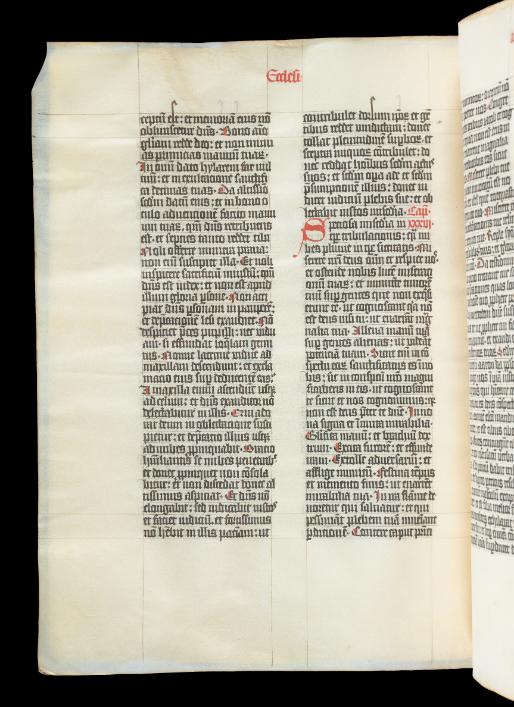 Ecclesi
ceptū est: et memoriā eius nō
obliuiscetur dn̄s. Bono aīo
gl̄iam redde deo: et non minu
as primicias manuū tuaꝝ.
In omī dato hylarem fac uul
tū tuū: et in exultacione sanctifi
ca decimas tuas. Da altissīo
scd̄m datū eius: et in bono o
culo adinuencionē facito manuū
tuaꝝ, qm̄ dn̄s retribuens
est: et septies tantū reddet tibi.
Noli offerre munera praua:
non em̄ suscipiet illa. Et noli
inspicere sacrificiū iniustū: qm̄
dn̄s est iudex: et non est apud
illum gloria ꝑsone. Non acci
piet dn̄s ꝑsonam in pauperē:
et deprecacionē lesi exaudiet. Nō
despiciet preces pupilli: nec vidu
am: si effundat loquelam gemi
tus. Nonne lacrime vidue ad
maxillam descendunt: et excla
macio eius sup̄ deducentē eas:
A maxilla enim ascendūt usqꝫ
ad celum: et dn̄s exauditor nō
delectabitur in illis. Qui ado
rat deum in oblectacione susci
pietur: et deprecacio illius usqꝫ
ad nubes ꝓpinquabit. Oracio
humiliantis se nubes penetrabit:
et donec ꝓpinquet non consola
bitur: et non discedat donec al
tissimus aspiciat. Et dn̄s nō
elongabit: sed iudicabit iustos
et faciet iudiciū: et fortissimus
nō hēbit in illis pacienciā: ut
contribulet dorsum ipoꝝ: et gē
tibus reddet vindictam: donec
tollat plenitudinē superboꝝ: et
sceptra iniquoꝝ contribulet: do
nec reddat hoībus scd̄m actus
suos: et scd̄m opa ade et scd̄m
presumpcionē illius: donec iu
dicet iudiciū plebis sue: et ob
lectabit iustos misc̄dia. Cap̄.
Speciosa misc̄dia dei in xxxvi.
tpe tribulacionis: quasi nu
bes pluuie in tpe siccitatis. Mi
serere nr̄i deus om̄i et respice nos:
et ostende nobis lucē miseracionū
tuaꝝ: et inmitte timorē
tuū sup̄ gentes que non exq̄sie
runt te: ut cognoscant q̄a nō
est deus nisi tu: ut enarrēt mag
nalia tua. Alleua manū tuā
sup̄ gentes alienas: ut videāt
potenciā tuam. Sicut em̄ in cō
spectu eoꝝ sanctificatus es in no
bis: sic in conspectu nr̄o magni
ficaberis in eis: ut cognoscant
te sicut et nos cognouimus: qm̄
non est deus p̄ter te dn̄e. Innoua
signa et inmuta mirabilia.
Glorifica manū: et brachiū dex
trum. Excita furorē: et effunde
iram. Extolle aduersariū: et
afflige inimicū. Festina tempus
et memento finis: ut enarrēt
mirabilia tua. In ira flāme de
uoretur qui saluatur: et qui
pessimant plebem tuā inueniant
ꝑdicionē. Contere caput prīci